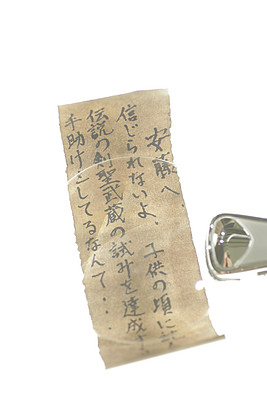 安藤へ
信じられないよ、子供の頃に
伝説の剣聖武蔵の試斗を達成
手助けしてるなんて・・・